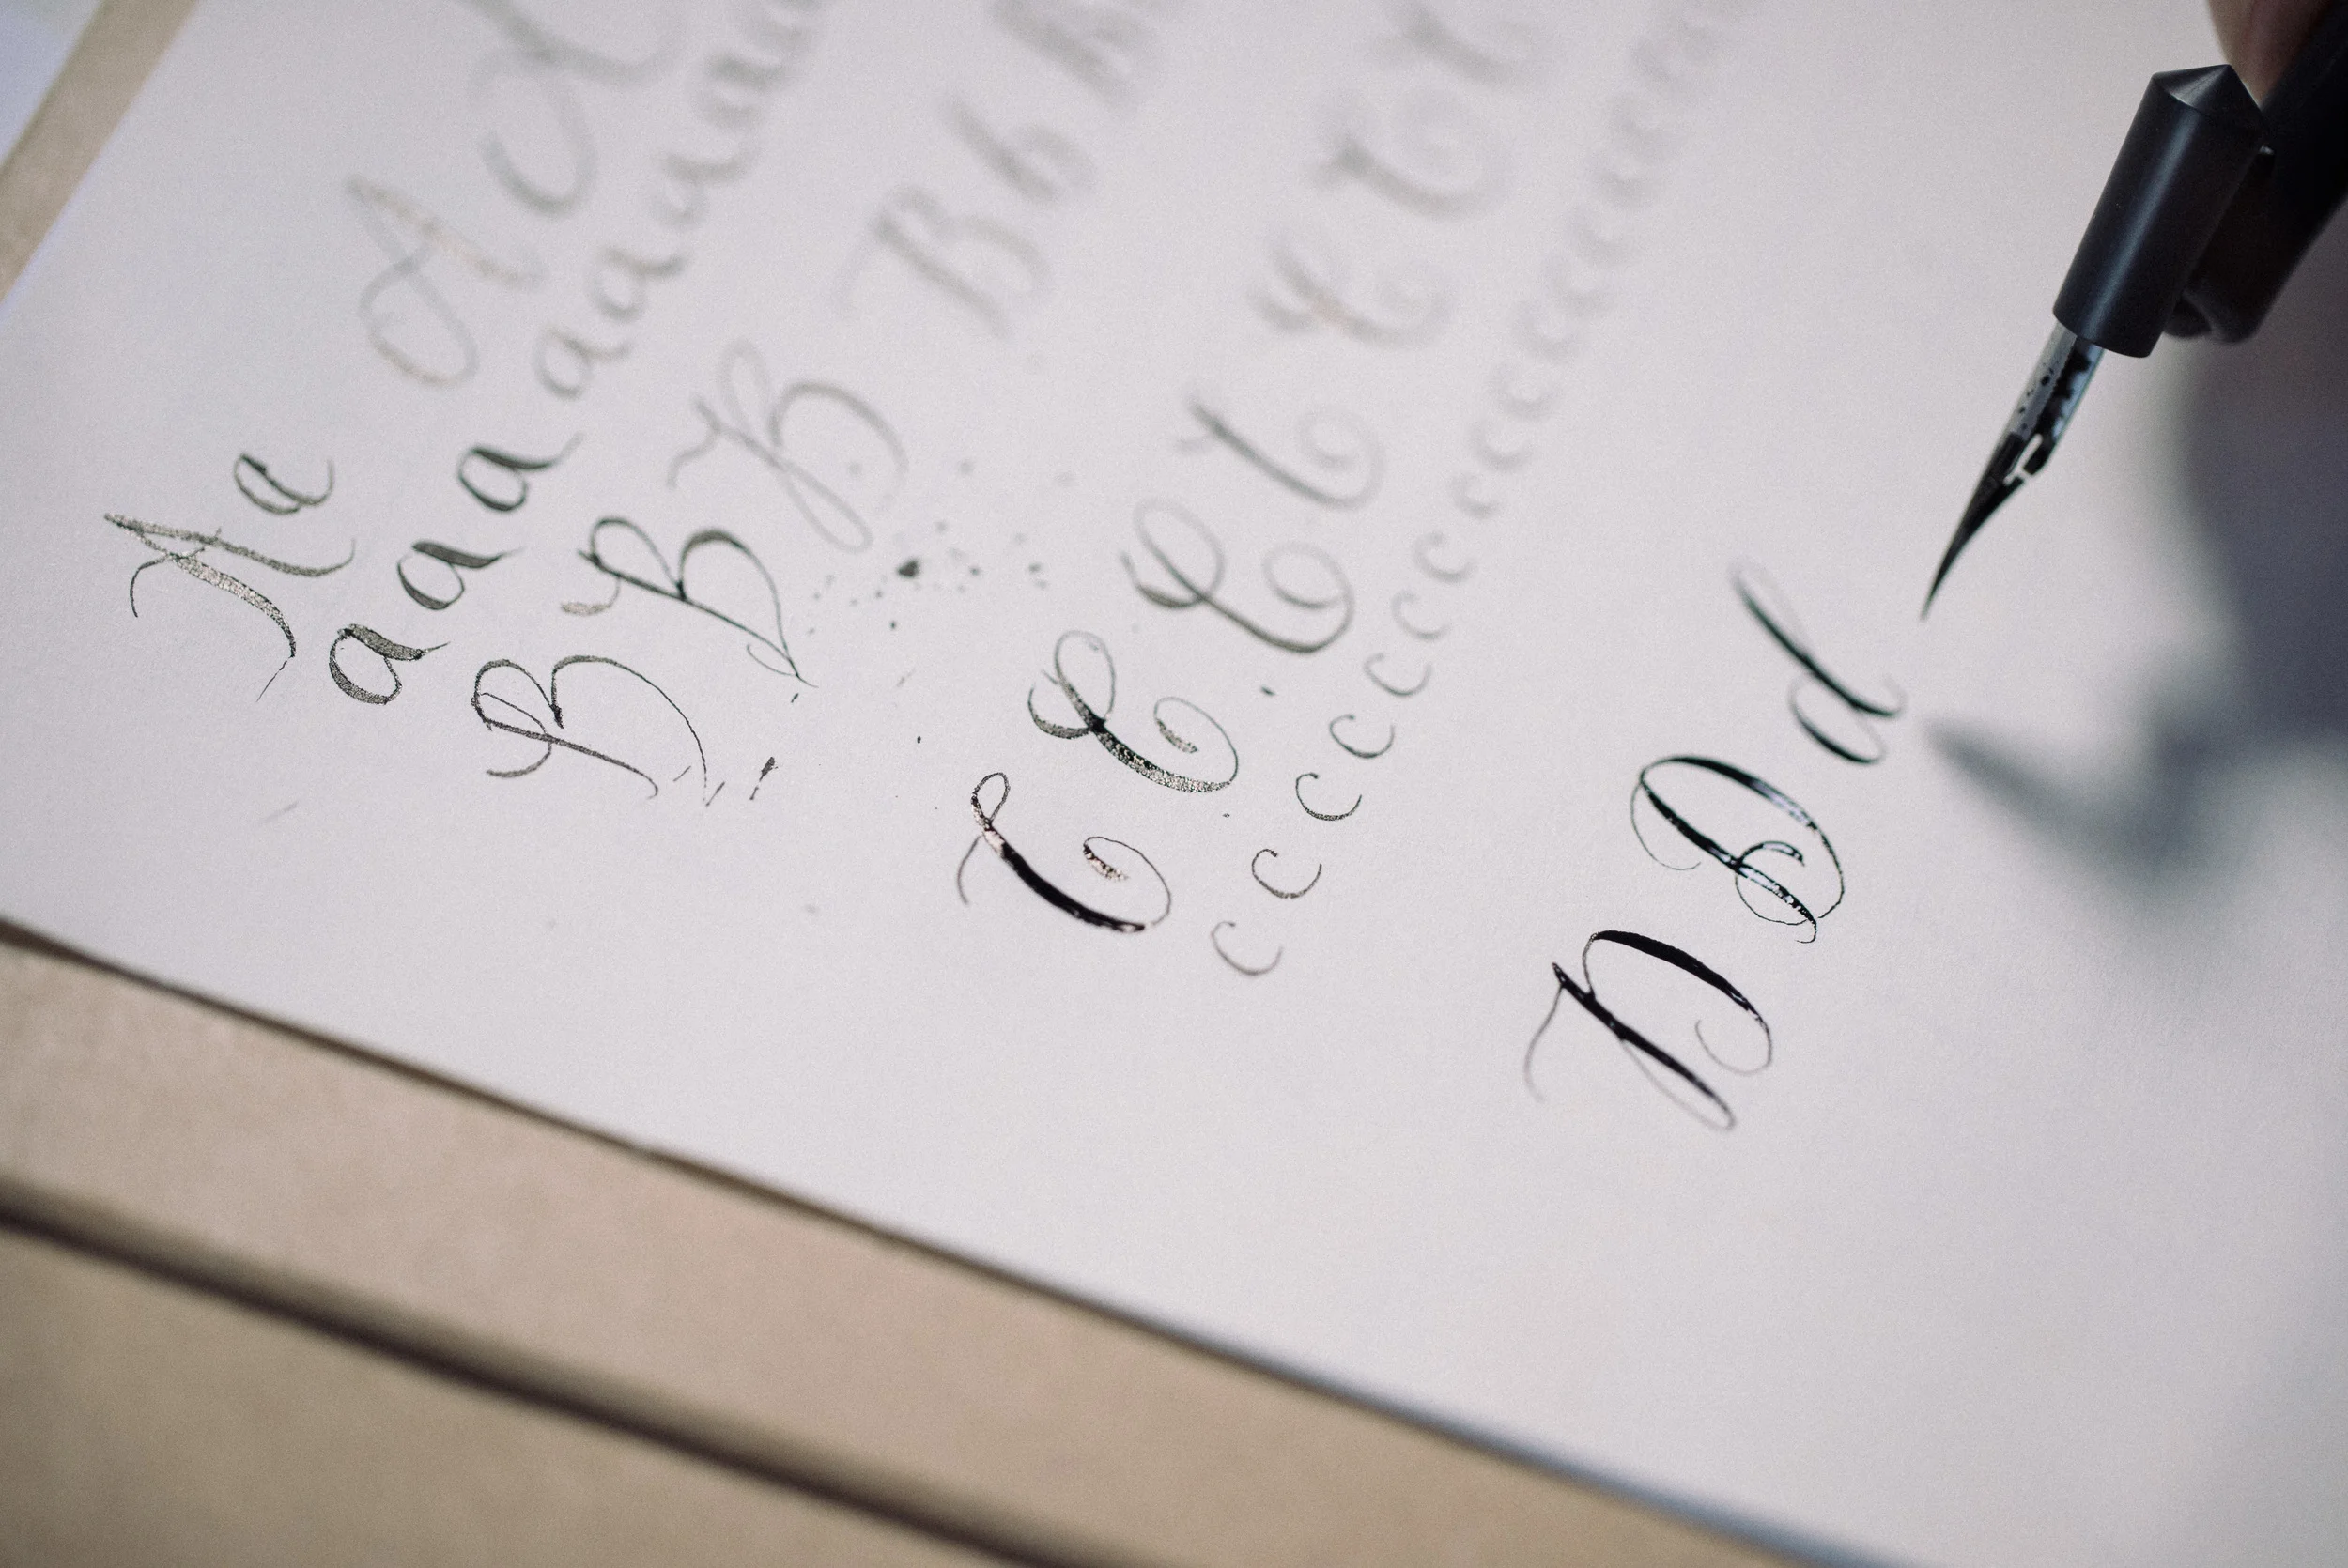 A a A A
a a a a a a a a a
B B B B b B
C C C C C C C
c c c c c c c c c c c c c c
D D d